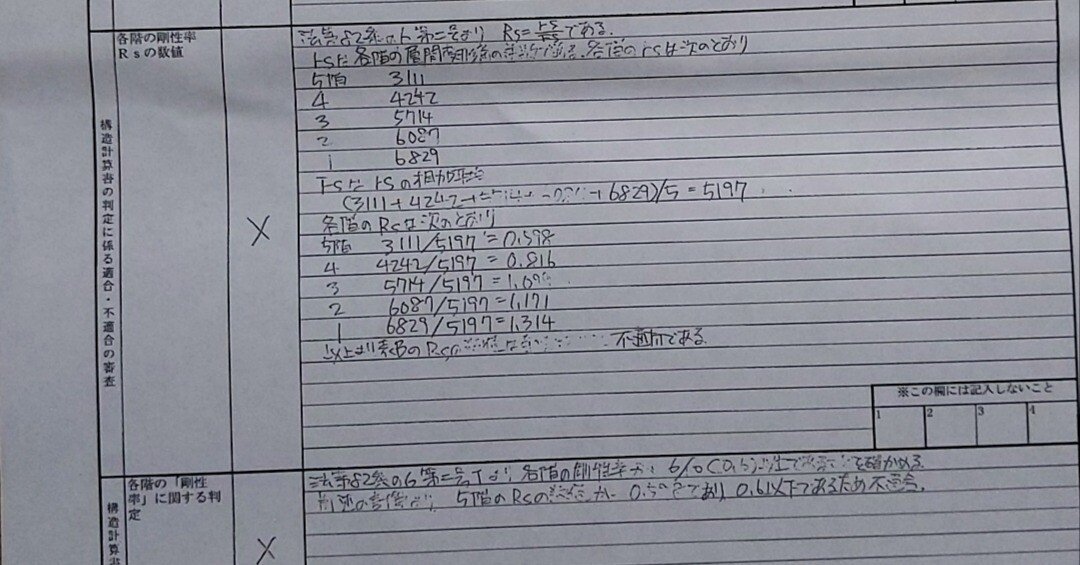 各階の剛性率
Rsの数値
×
構造計算書の判定に係る適合・不適合の審査
第二号より Rs=である.
rsは各階の層間変形角の逆数である. 各階のrsは次のとおり
5階 3111
4 4242
3 5714
2 6087
1 6829
r̄sは rsの相加平均
(3111+4242+ 6829)/5=5197
各階のRsは次のとおり
5階 3111/5197=0.598
4 4242/5197=0.816
3 5714/5197=1.09
2 6087/5197=1.171
1 6829/5197=1.314
以上より表BのRsの 不適切である.
※この欄には記入しないこと
1 2 3 4
各階の「剛性
率」に関する判
定
×
構造計算書
の6第二号イより 各階の剛性率が 6/10(0.6)以上で を確かめる.
5階のRsの が であり 0.6以下であるため不適合.